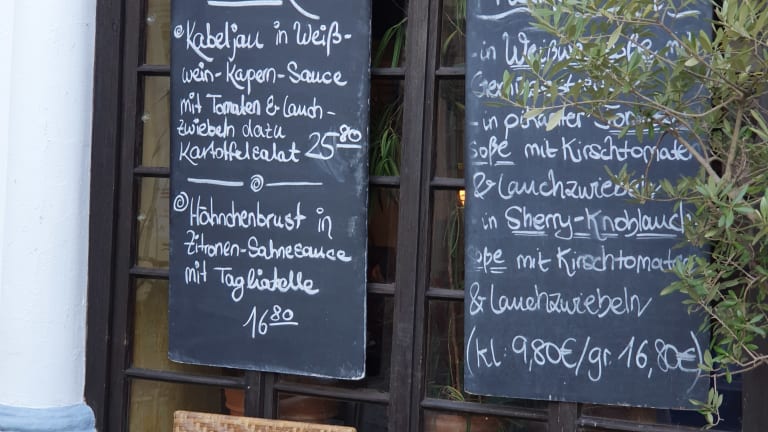 Kabeljau in Weiß-
wein-Kapern-Sauce
mit Tomaten & Lauch-
zwiebeln dazu
Kartoffelsalat 25 80
Hähnchenbrust in
Zitronen-Sahnesauce
mit Tagliatelle
16 80
- in
- in
soße mit Kirschtomaten
& Lauchzwiebeln
- in Sherry-Knoblauch
soße mit Kirschtomaten
& Lauchzwiebeln
(kl. 9,80€/gr. 16,80€)